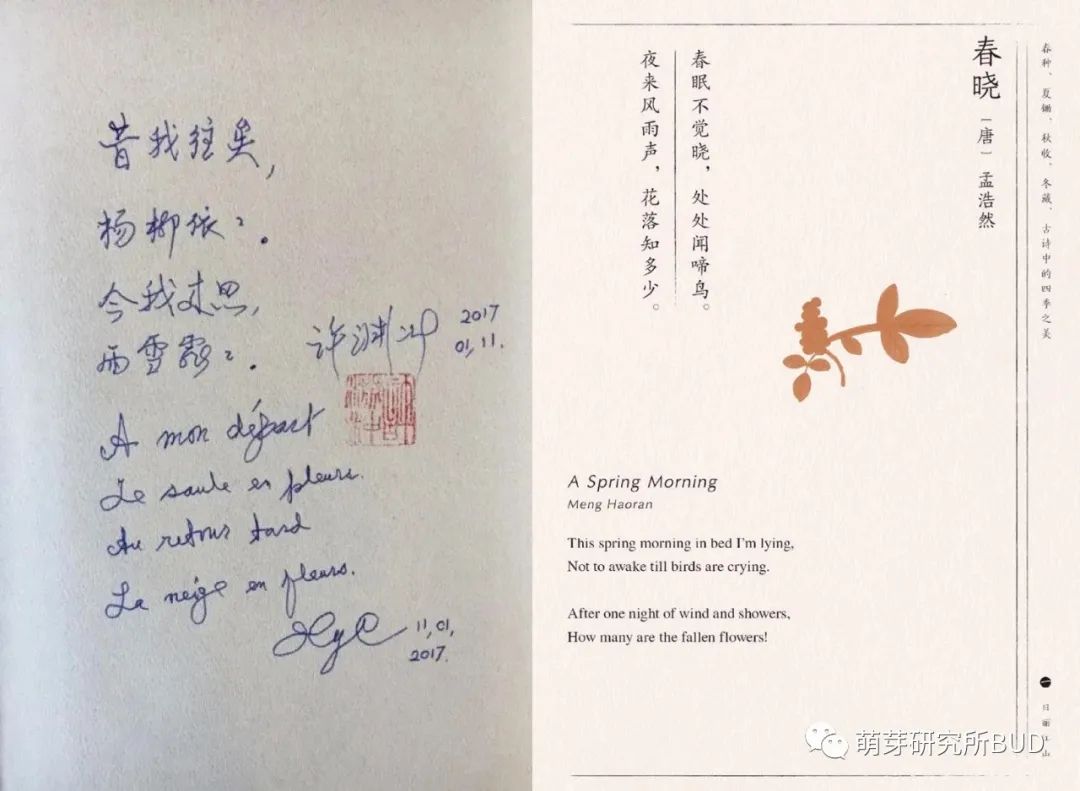 昔我往矣,
杨柳依〻.
今我来思,
雨雪霏〻.
许渊冲
2017
01,11.
A mon départ
Le saule en pleurs.
Au retour tard
La neige en fleurs.
XYC
11,01,
2017.
春种、夏锄、秋收、冬藏,古诗中的四季之美
春晓
[唐] 孟浩然
春眠不觉晓,处处闻啼鸟。
夜来风雨声,花落知多少。
A Spring Morning
Meng Haoran
This spring morning in bed I'm lying,
Not to awake till birds are crying.
After one night of wind and showers,
How many are the fallen flowers!
日丽江山
萌芽研究所BUD